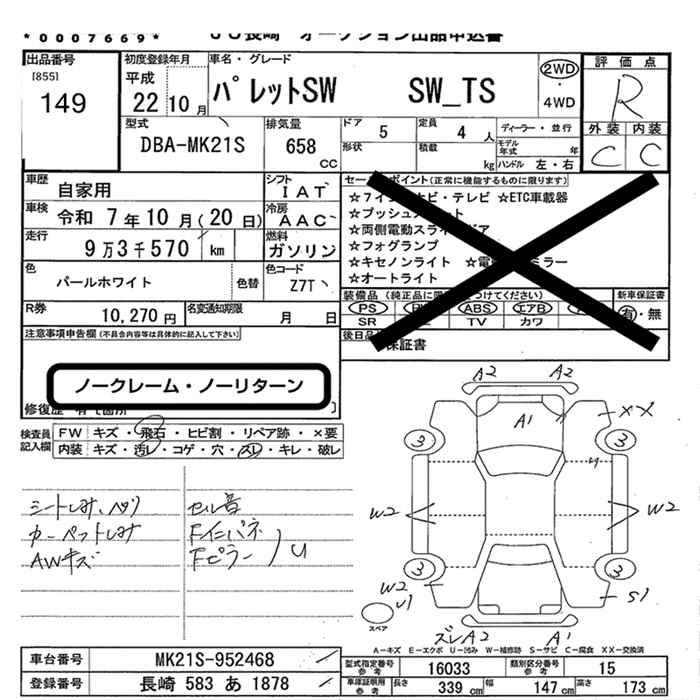 *0007669*
JU長崎 オークション出品申込書
出品番号
[855]
149
初度登録年月
平成
22年10月
車名・グレード
パレットSW SW_TS
2WD
・
4WD
評価点
R
外装 内装
C C
型式
DBA-MK21S
排気量
658
CC
ドア 5
定員 4人
ディーラー・並行
形状
積載 kg
モデル年式 年
ハンドル 左・右
車歴
自家用
シフト
IAT
車検
令和 7年10月(20日)
冷房
AAC
走行
9万3千570 km
燃料
ガソリン
色
パールホワイト
色替
色コード
Z7T
R券
10,270円
名変通知期限
月 日
セールスポイント(正常に機能するものに限ります)
☆ETC車載器
☆プッシュスタート
☆両側電動スライドドア
☆フォグランプ
☆キセノンライト
☆オートライト
装備品(純正品に限り○をつけてください)
PS ABS エアB
SR TV カワ
新車保証書
有・無
後日品
保証書
注意事項申告欄(不具合内容等は具体的に記入して下さい)
ノークレーム・ノーリターン
修復歴 有て箇所
検査員記入欄
FW キズ・飛石・ヒビ割・リペア跡・×要
内装 キズ・汚レ・コゲ・穴・スレ・キレ・破レ
シートしみ、ヘタリ
カーペットしみ
AWキズ
セル音
Fインパネ
Fピラー
U
A2 A2
A1
XX
3 3
W2 W2
3 3
W2
U1
S1
スペア
ズレA2 A1
A-キズ E-エクボ U-凹み W-補修跡 S-サビ C-腐食 XX-交換済
車台番号
MK21S-952468
登録番号
長崎 583 あ 1878
型式指定番号
参考
16033
類別区分番号
参考
15
車庫証明用
参考
長さ 339 cm
幅 147 cm
高さ 173 cm